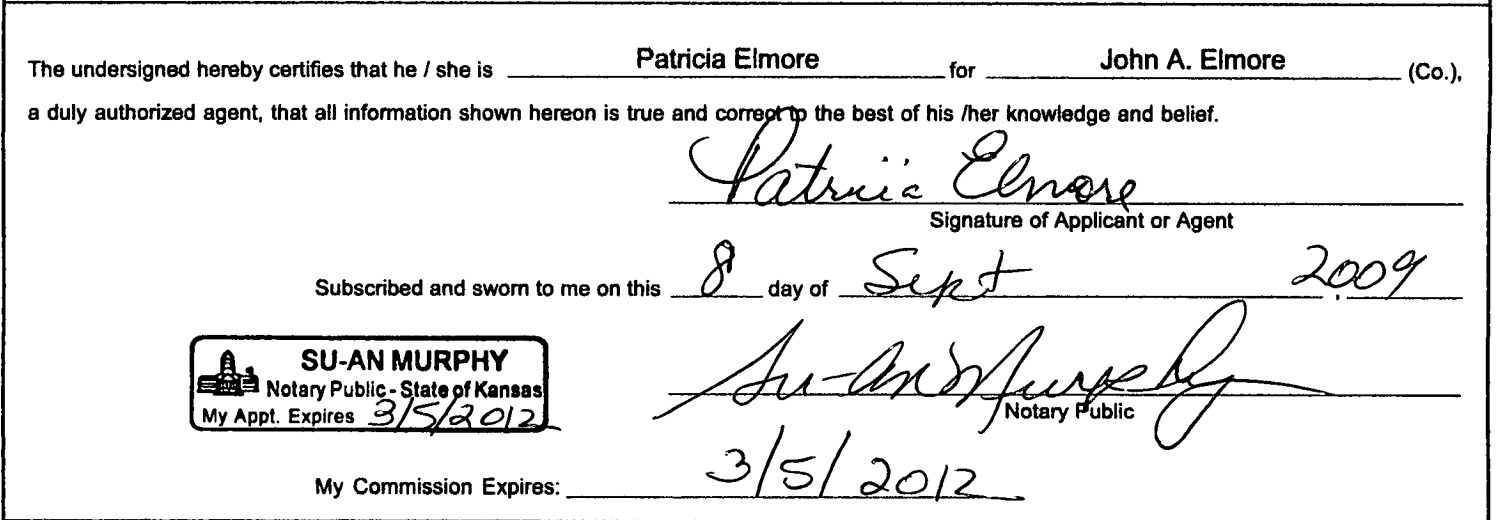 The undersigned hereby certifies that he / she is Patricia Elmore for John A. Elmore (Co.),
a duly authorized agent, that all information shown hereon is true and correct to the best of his /her knowledge and belief.
Patricia Elmore
Signature of Applicant or Agent
Subscribed and sworn to me on this 8 day of Sept , 2009
SU-AN MURPHY
Notary Public - State of Kansas
My Appt. Expires 3/5/2012
Su-An Murphy
Notary Public
My Commission Expires: 3/5/2012